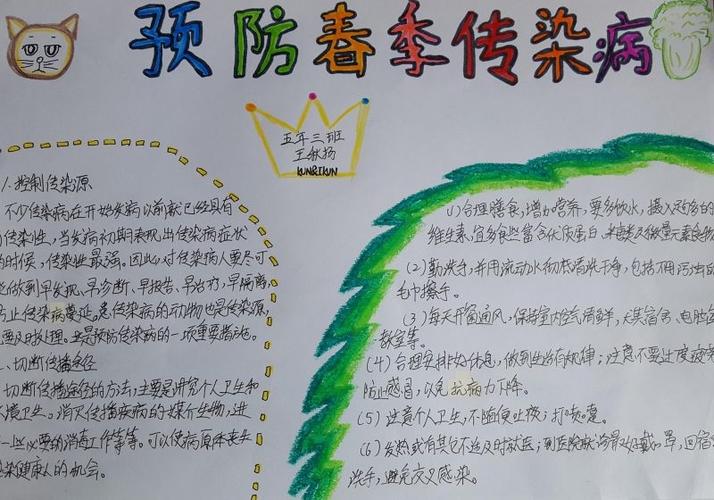 预防春季传染病
五年三班
王秋扬
KUN&IKUN
1.控制传染源
不少传染病在开始发病以前就已经具有
传染性，当发病初期表现出传染病症状
的时候，传染性最强。因此，对传染病人要尽可
能做到早发现、早诊断、早报告、早治疗、早隔离，
防止传染病蔓延。患传染病的动物也是传染源，
要及时处理。这是预防传染病的一项重要措施。
、切断传播途径
切断传播途径的方法，主要是讲究个人卫生和
环境卫生。消灭传播疾病的媒介生物，进
一些必要的消毒工作等等。可以使病原体丧失
感染健康人的机会。
(1)合理膳食，增加营养，要多饮水，摄入足够的
维生素，宜多食些富含优质蛋白、糖类及微量元素食物
(2)勤洗手，并用流动水彻底清洗干净，包括不用污浊的
毛巾擦手。
(3)每天开窗通风，保持室内空气清鲜，尤其宿舍、电脑室
教室等。
(4)合理安排好休息，做到生活有规律；注意不要过度疲劳
防止感冒，以免抗病力下降。
(5)注意个人卫生，不随便吐痰；打喷嚏。
(6)发热或有其它不适及时就医；到医院就诊最好戴口罩，回宿
洗手，避免交叉感染。